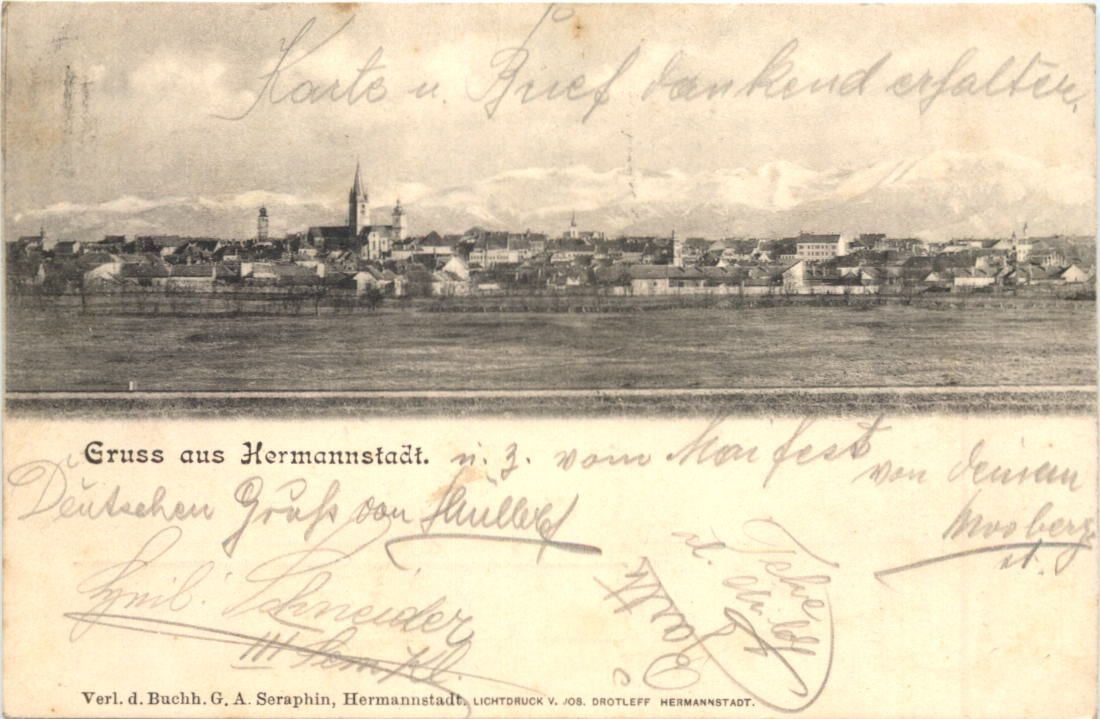 Karte u. Brief dankend erhalten,
Gruss aus Hermannstadt.
u. z. vom Maifest
von deinem
Deutschen Gruß von
Mooberg
Schneider
III Sem. Kl.
Verl. d. Buchh. G. A. Seraphin, Hermannstadt.
LICHTDRUCK V. JOS. DROTLEFF HERMANNSTADT.